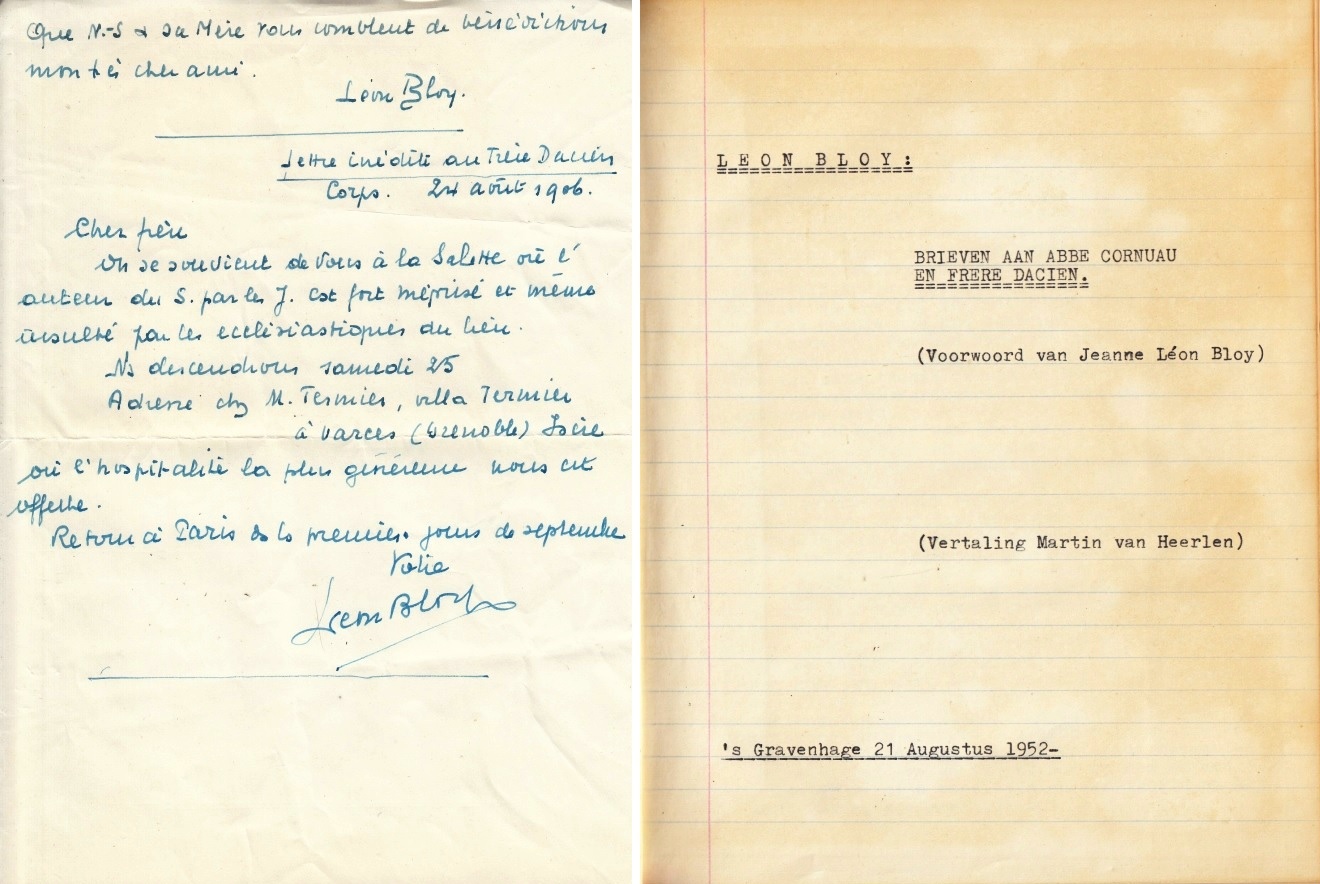 Que N.-S & sa Mère vous comblent de bénédictions
mon très cher ami.
Léon Bloy.
Lettre inédite au Frère Dacien
Corps. 24 août 1906.
Cher frère
On se souvient de vous à la Salette où l'
auteur du S. par les J. est fort méprisé et même
insulté par les ecclésiastiques du lieu.
Ns descendrons samedi 25
Adresse chez M. Termier, villa Termier
à Varces (Grenoble) Isère
où l'hospitalité la plus généreuse nous est
offerte.
Retour à Paris ds ls premiers jours de septembre
Votre
Léon Bloy
LEON BLOY:
BRIEVEN AAN ABBE CORNUAU
EN FRERE DACIEN.
(Voorwoord van Jeanne Léon Bloy)
(Vertaling Martin van Heerlen)
's Gravenhage 21 Augustus 1952-